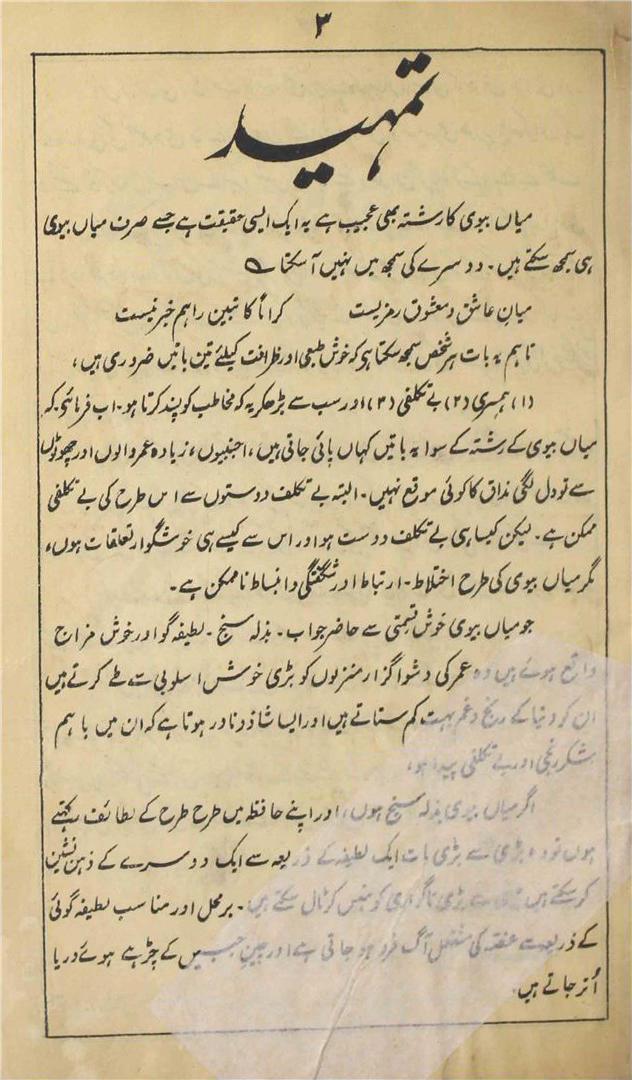 ۳
تمہید
میاں بیوی کا رشتہ بھی عجیب ہے یہ ایک ایسی حقیقت ہے جسے صرف میاں بیوی
ہی سمجھ سکتے ہیں۔ دوسرے کی سمجھ میں نہیں آسکتا ؎
میانِ عاشق و معشوق رمزیست کراماً کاتبین را ہم خبر نیست
تاہم یہ بات ہر شخص سمجھ سکتا ہی کہ خوش طبعی اور ظرافت کیلئے تین باتیں ضروری ہیں،
(۱) ہمسری (۲) بے تکلفی (۳) اور سب سے بڑھکر یہ کہ مخاطب کو پسند کرتا ہو۔ اب فرمائیے کہ
میاں بیوی کے رشتہ کے سوا یہ باتیں کہاں پائی جاتی ہیں، اجنبیوں، زیادہ عمر والوں اور چھوٹوں
سے تو دل لگی مذاق کا کوئی موقع نہیں۔ البتہ بے تکلف دوستوں سے اس طرح کی بے تکلفی
ممکن ہے۔ لیکن کیسا ہی بے تکلف دوست ہو اور اس سے کیسے ہی خوشگوار تعلقات ہوں،
مگر میاں بیوی کی طرح اختلاط۔ ارتباط اور شگفتگی و انبساط ناممکن ہے۔
جو میاں بیوی خوش قسمتی سے حاضر جواب۔ بذلہ سنج۔ لطیفہ گو اور خوش مزاج
واقع ہوئے ہیں وہ عمر کی دشوا گزار منزلوں کو بڑی خوش اسلوبی سے طے کرتے ہیں
ان کو دنیا کے رنج و غم بہت کم ستاتے ہیں اور ایسا شاذ و نادر ہوتا ہے کہ ان میں باہم
شکر رنجی اور بے تکلفی پیدا ہو،
اگر میاں بیوی بذلہ سنج ہوں، اور اپنے حافظہ میں طرح طرح کے لطائف رکھتے
ہوں تو وہ بڑی سے بڑی بات ایک لطیفہ کے ذریعہ سے ایک دوسرے کے ذہن نشین
کر سکتے ہیں بڑی سے بڑی ناگواری کو ہنس کر ٹال سکتے ہیں۔ برمحل اور مناسب لطیفہ گوئی
کے ذریعہ سے غصہ کی مشتعل آگ فرو ہو جاتی ہے اور چین جبیں کے چڑھے ہوئے دریا
اُتر جاتے ہیں